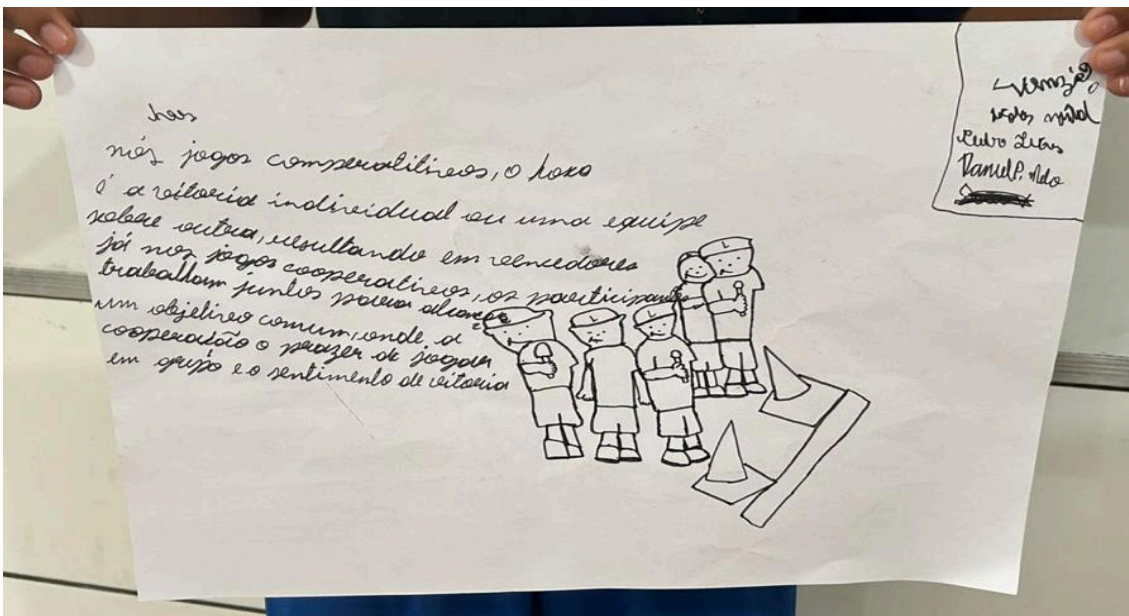 nós jogos comperalitireos, o foxo
é a vitoria individual ou uma equipe
sobre outra, resultando em vencedores
já nos jogos cooperativos, os participantes
trabalham juntos para alcançar
um objetivo comum, onde a
cooperatão o prazer de jogar
em grupo e o sentimento de vitoria
Pedro
Daniel P.